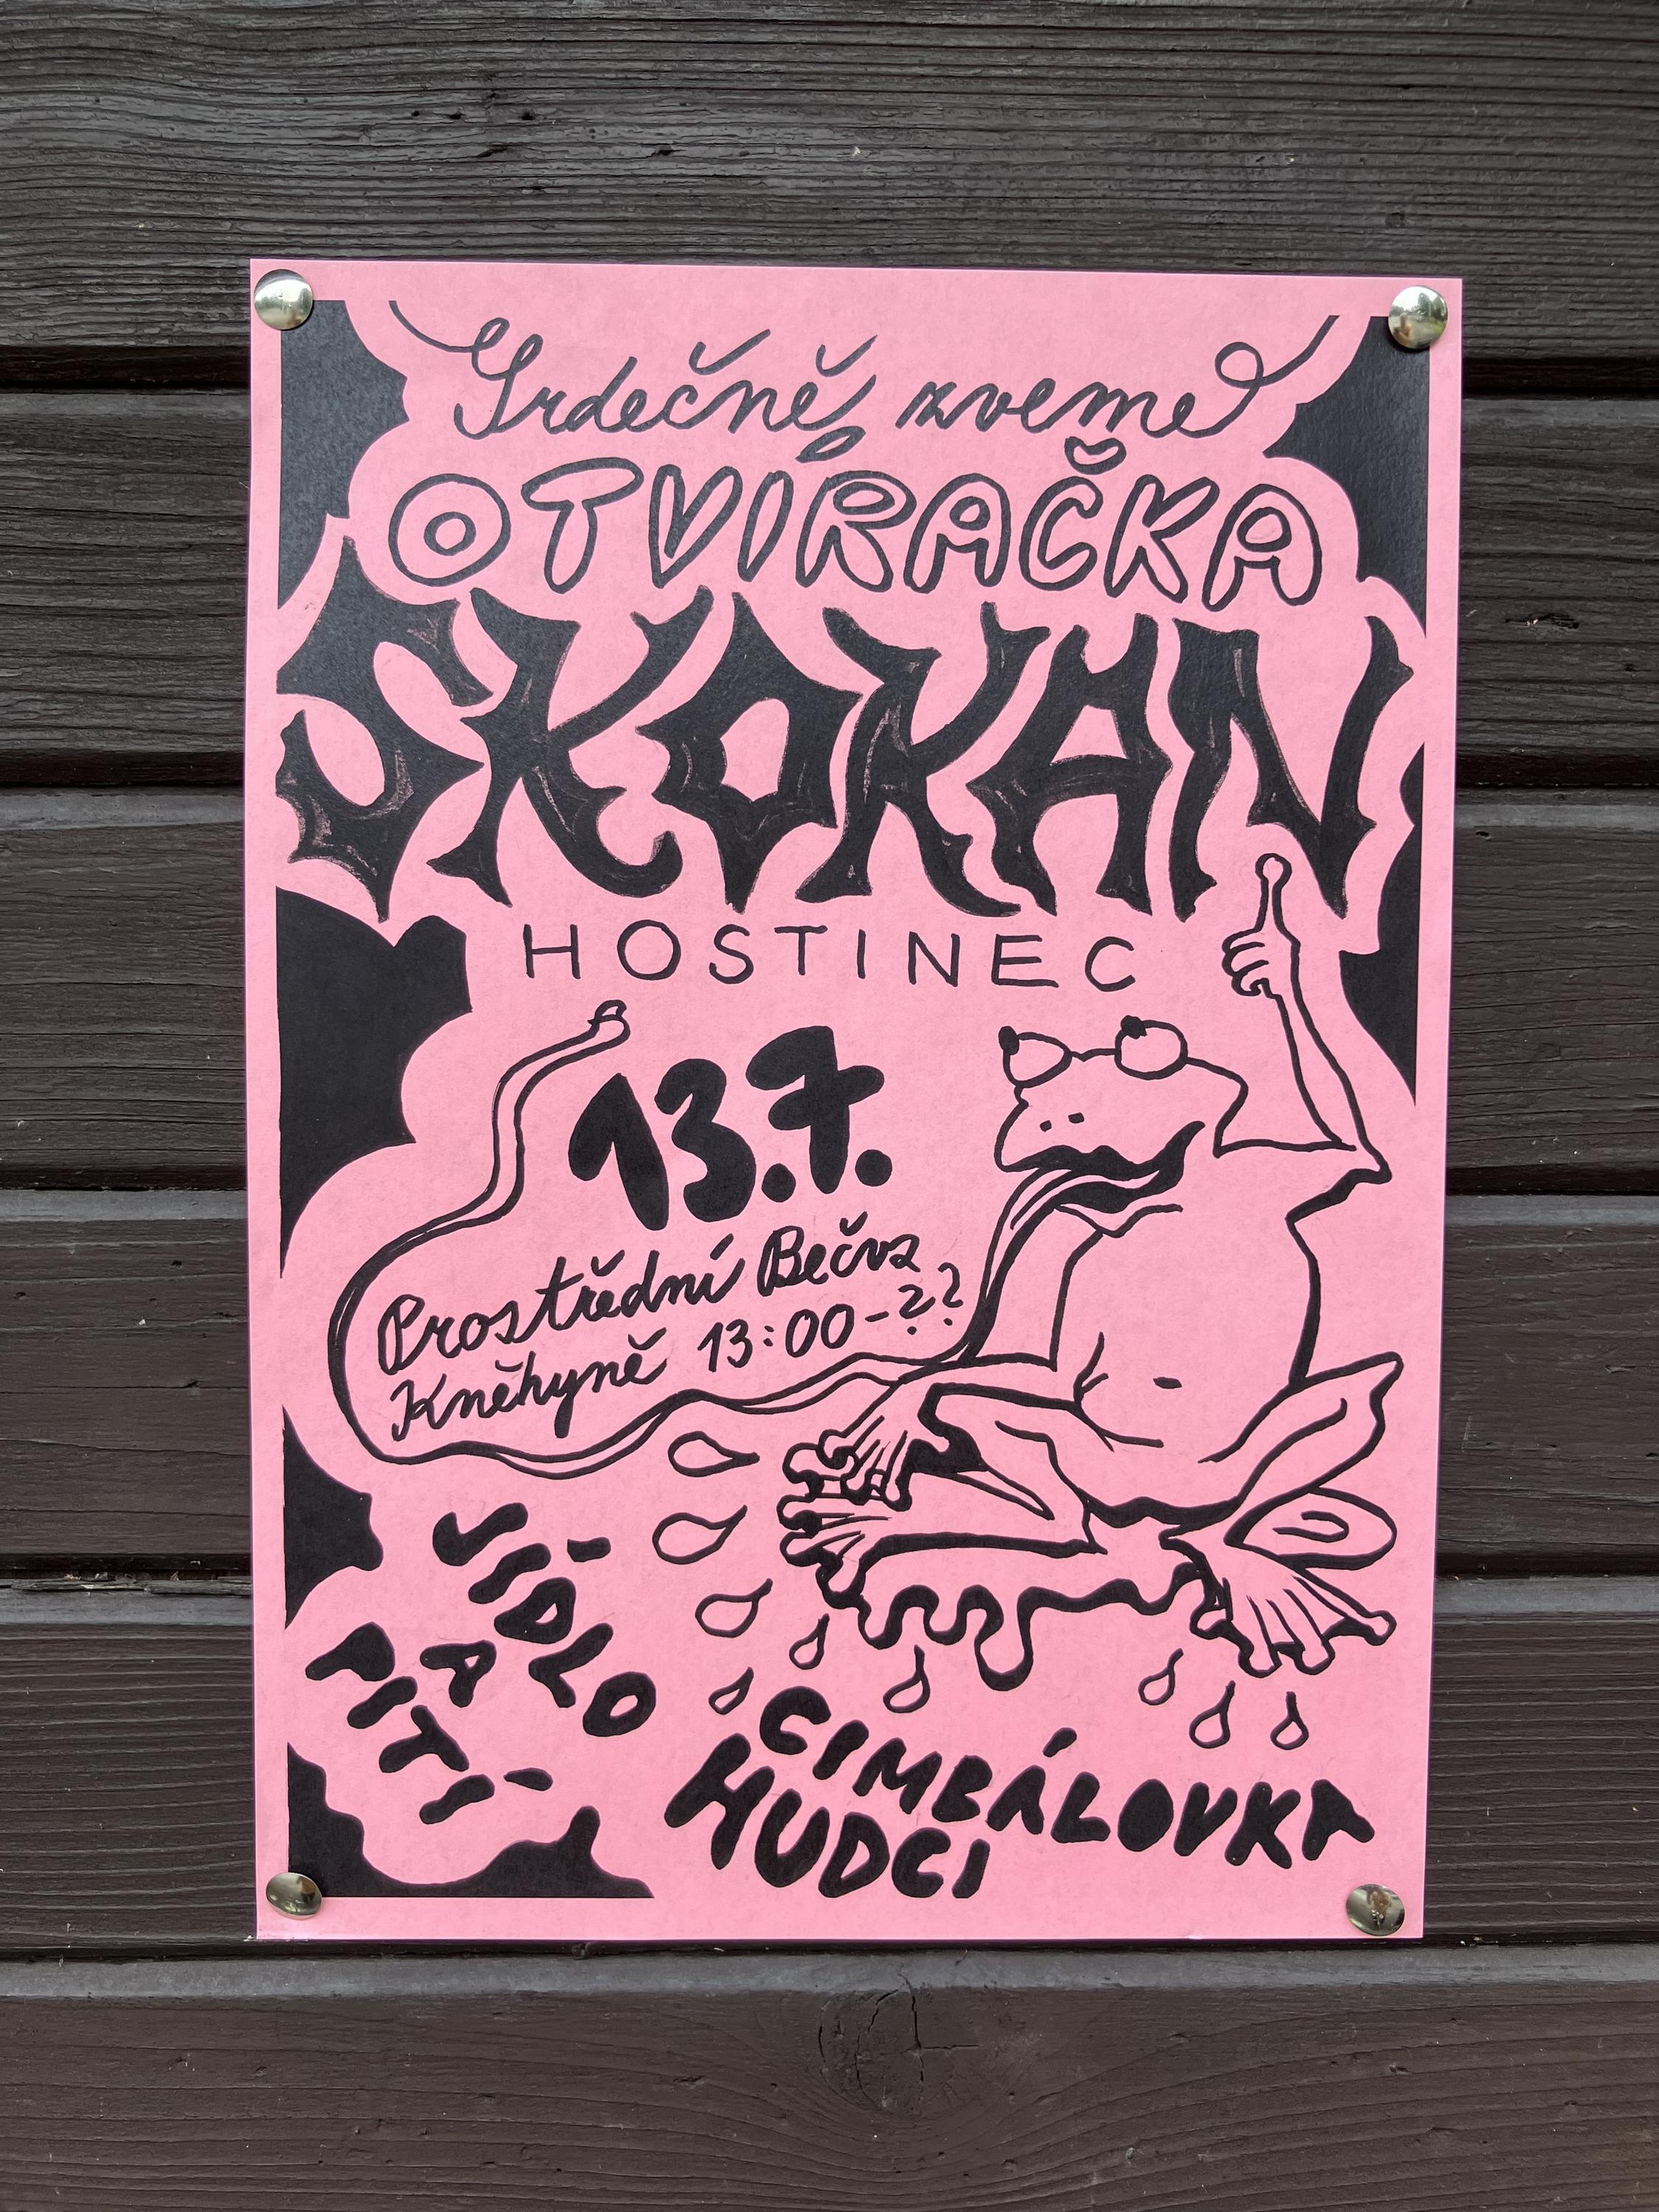 Srdečně zveme
OTVÍRAČKA
SKOKAN
HOSTINEC
13.7.
Prostřední Bečva
Kněhyně 13:00-??
JÍDLO
A
PITÍ
CIMBÁLOVKA
HUDCI